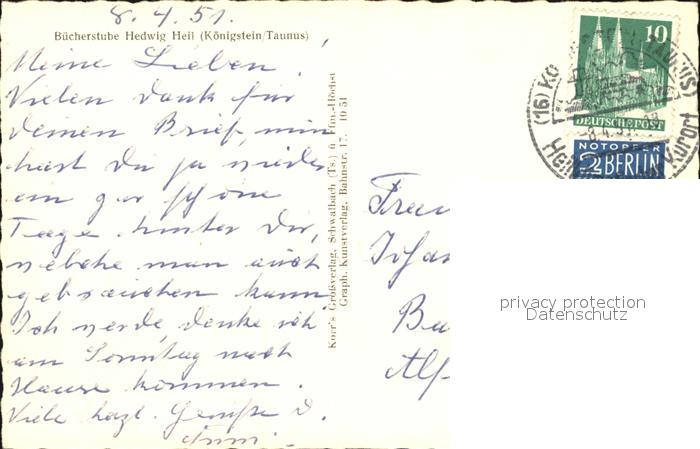 8.4.51.
Bücherstube Hedwig Heil (Königstein/Taunus)
Meine Lieben!
Vielen Dank für
Deinen Brief, nun
hast Du ja wieder
ein par schöne
Tage hinter Dir,
welche man auch
gebrauchen kann
Ich werde, denke ich
am Sonntag nach
Hause kommen.
Viele herzl. Grüße D.
Korr's Großverlag, Schwalbach (Ts.) ü. Ffm.-Höchst
Graph. Kunstverlag, Bahnstr. 17. 10 51
10
DEUTSCHE POST
NOTOPFER
2 BERLIN
(16)
(TAUNUS)
Kurort
Frau
Ba
privacy protection
Datenschutz